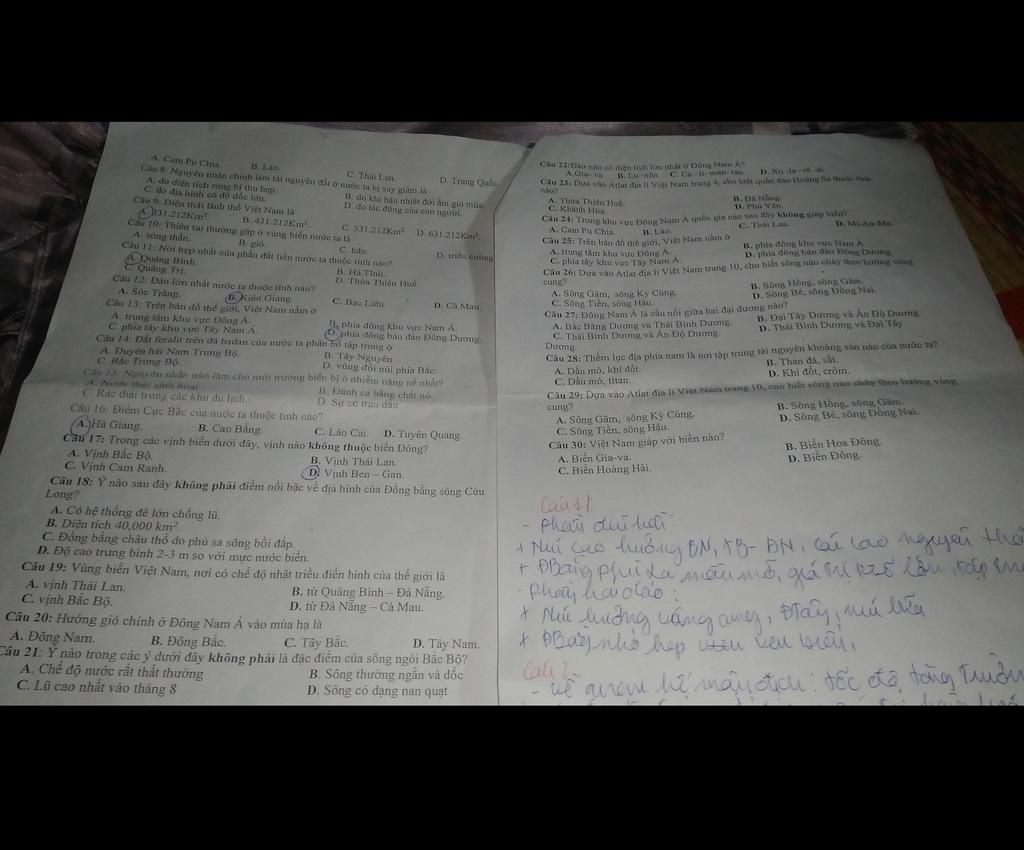 A. Cam Pu Chia. B. Lào. C. Thái Lan. D. Trung Quốc
Câu 8: Nguyên nhân chính làm tài nguyên đất ở nước ta bị suy giảm là
A. do diện tích rừng bị thu hẹp. B. do khí hậu nhiệt đới ẩm gió mùa.
C. do địa hình có độ dốc lớn. D. do tác động của con người.
Câu 9: Diện tích lãnh thổ Việt Nam là
A. 331.212Km². B. 431.212Km². C. 531.212Km². D. 631.212Km².
Câu 10: Thiên tai thường gặp ở vùng biển nước ta là
A. sóng thần. B. gió. C. bão. D. triều cường
Câu 11: Nơi hẹp nhất của phần đất liền nước ta thuộc tỉnh nào?
A. Quảng Bình. B. Hà Tĩnh.
C. Quảng Trị. D. Thừa Thiên Huế.
Câu 12: Đảo lớn nhất nước ta thuộc tỉnh nào?
A. Sóc Trăng. B. Kiên Giang. C. Bạc Liêu. D. Cà Mau.
Câu 13: Trên bản đồ thế giới, Việt Nam nằm ở
A. trung tâm khu vực Đông Á. B. phía đông khu vực Nam Á.
C. phía tây khu vực Tây Nam Á. D. phía đông bán đảo Đông Dương.
Câu 14: Đất feralit trên đá badan của nước ta phân bố tập trung ở
A. Duyên hải Nam Trung Bộ. B. Tây Nguyên.
C. Bắc Trung Bộ. D. vùng đồi núi phía Bắc.
Câu 15: Nguyên nhân nào làm cho môi trường biển bị ô nhiễm nặng nề nhất?
A. Nước thải sinh hoạt. B. Đánh cá bằng chất nổ.
C. Rác thải trong các khu du lịch. D. Sự cố tràn dầu.
Câu 16: Điểm Cực Bắc của nước ta thuộc tỉnh nào?
A. Hà Giang. B. Cao Bằng. C. Lào Cai. D. Tuyên Quang.
Câu 17: Trong các vịnh biển dưới đây, vịnh nào không thuộc biển Đông?
A. Vịnh Bắc Bộ. B. Vịnh Thái Lan.
C. Vịnh Cam Ranh. D. Vịnh Ben – Gan.
Câu 18: Ý nào sau đây không phải điểm nổi bậc về địa hình của Đồng bằng sông Cửu
Long?
A. Có hệ thống đê lớn chống lũ.
B. Diện tích 40,000 km².
C. Đồng bằng châu thổ do phù sa sông bồi đắp.
D. Độ cao trung bình 2-3 m so với mực nước biển.
Câu 19: Vùng biển Việt Nam, nơi có chế độ nhật triều điển hình của thế giới là
A. vịnh Thái Lan. B. từ Quảng Bình – Đà Nẵng.
C. vịnh Bắc Bộ. D. từ Đà Nẵng – Cà Mau.
Câu 20: Hướng gió chính ở Đông Nam Á vào mùa hạ là
A. Đông Nam. B. Đông Bắc. C. Tây Bắc. D. Tây Nam.
Câu 21: Ý nào trong các ý dưới đây không phải là đặc điểm của sông ngòi Bắc Bộ?
A. Chế độ nước rất thất thường B. Sông thường ngắn và dốc
C. Lũ cao nhất vào tháng 8 D. Sông có dạng nan quạt
Câu 22:Đảo nào có diện tích lớn nhất ở Đông Nam Á?
A.Gia- va B. Lu -xôn C. Ca –li- man- tan D. Xu -la -vê -di
Câu 23: Dựa vào Atlat địa lí Việt Nam trang 4, cho biết quần đảo Hoàng Sa thuộc tỉnh
nào?
A. Thừa Thiên Huế. B. Đà Nẵng.
C. Khánh Hòa. D. Phú Yên.
Câu 24: Trong khu vực Đông Nam Á quốc gia nào sau đây không giáp biển?
A. Cam Pu Chia. B. Lào. C. Thái Lan. D. Mi-An-Ma.
Câu 25: Trên bản đồ thế giới, Việt Nam nằm ở
A. trung tâm khu vực Đông Á. B. phía đông khu vực Nam Á.
C. phía tây khu vực Tây Nam Á. D. phía đông bán đảo Đông Dương.
Câu 26: Dựa vào Atlat địa lí Việt Nam trang 10, cho biết sông nào chảy theo hướng vòng
cung?
A. Sông Gâm, sông Kỳ Cùng. B. Sông Hồng, sông Gâm.
C. Sông Tiền, sông Hậu. D. Sông Bé, sông Đồng Nai.
Câu 27: Đông Nam Á là cầu nối giữa hai đại dương nào?
A. Bắc Băng Dương và Thái Bình Dương. B. Đại Tây Dương và Ấn Độ Dương.
C. Thái Bình Dương và Ấn Độ Dương. D. Thái Bình Dương và Đại Tây
Dương.
Câu 28: Thềm lục địa phía nam là nơi tập trung tài nguyên khoáng sản nào của nước ta?
A. Dầu mỏ, khí đốt. B. Than đá, sắt.
C. Dầu mỏ, titan. D. Khí đốt, crôm.
Câu 29: Dựa vào Atlat địa lí Việt Nam trang 10, cho biết sông nào chảy theo hướng vòng
cung?
A. Sông Gâm, sông Kỳ Cùng. B. Sông Hồng, sông Gâm.
C. Sông Tiền, sông Hậu. D. Sông Bé, sông Đồng Nai.
Câu 30: Việt Nam giáp với biển nào?
A. Biển Gia-va. B. Biển Hoa Đông.
C. Biển Hoàng Hải. D. Biển Đông.
Câu 1:
- Phần đất liền:
+ Núi cao hướng BN, TB- ĐN, cao nguyên
+ ĐBằng phù sa màu mỡ, giá trị lớn, tập
- Phần hải đảo:
+ Núi hướng vòng cung, ĐTây, núi lửa
+ ĐBằng nhỏ hẹp ven biển.
Câu 2:
- Về quan hệ mậu dịch: tốc độ tăng trưởng